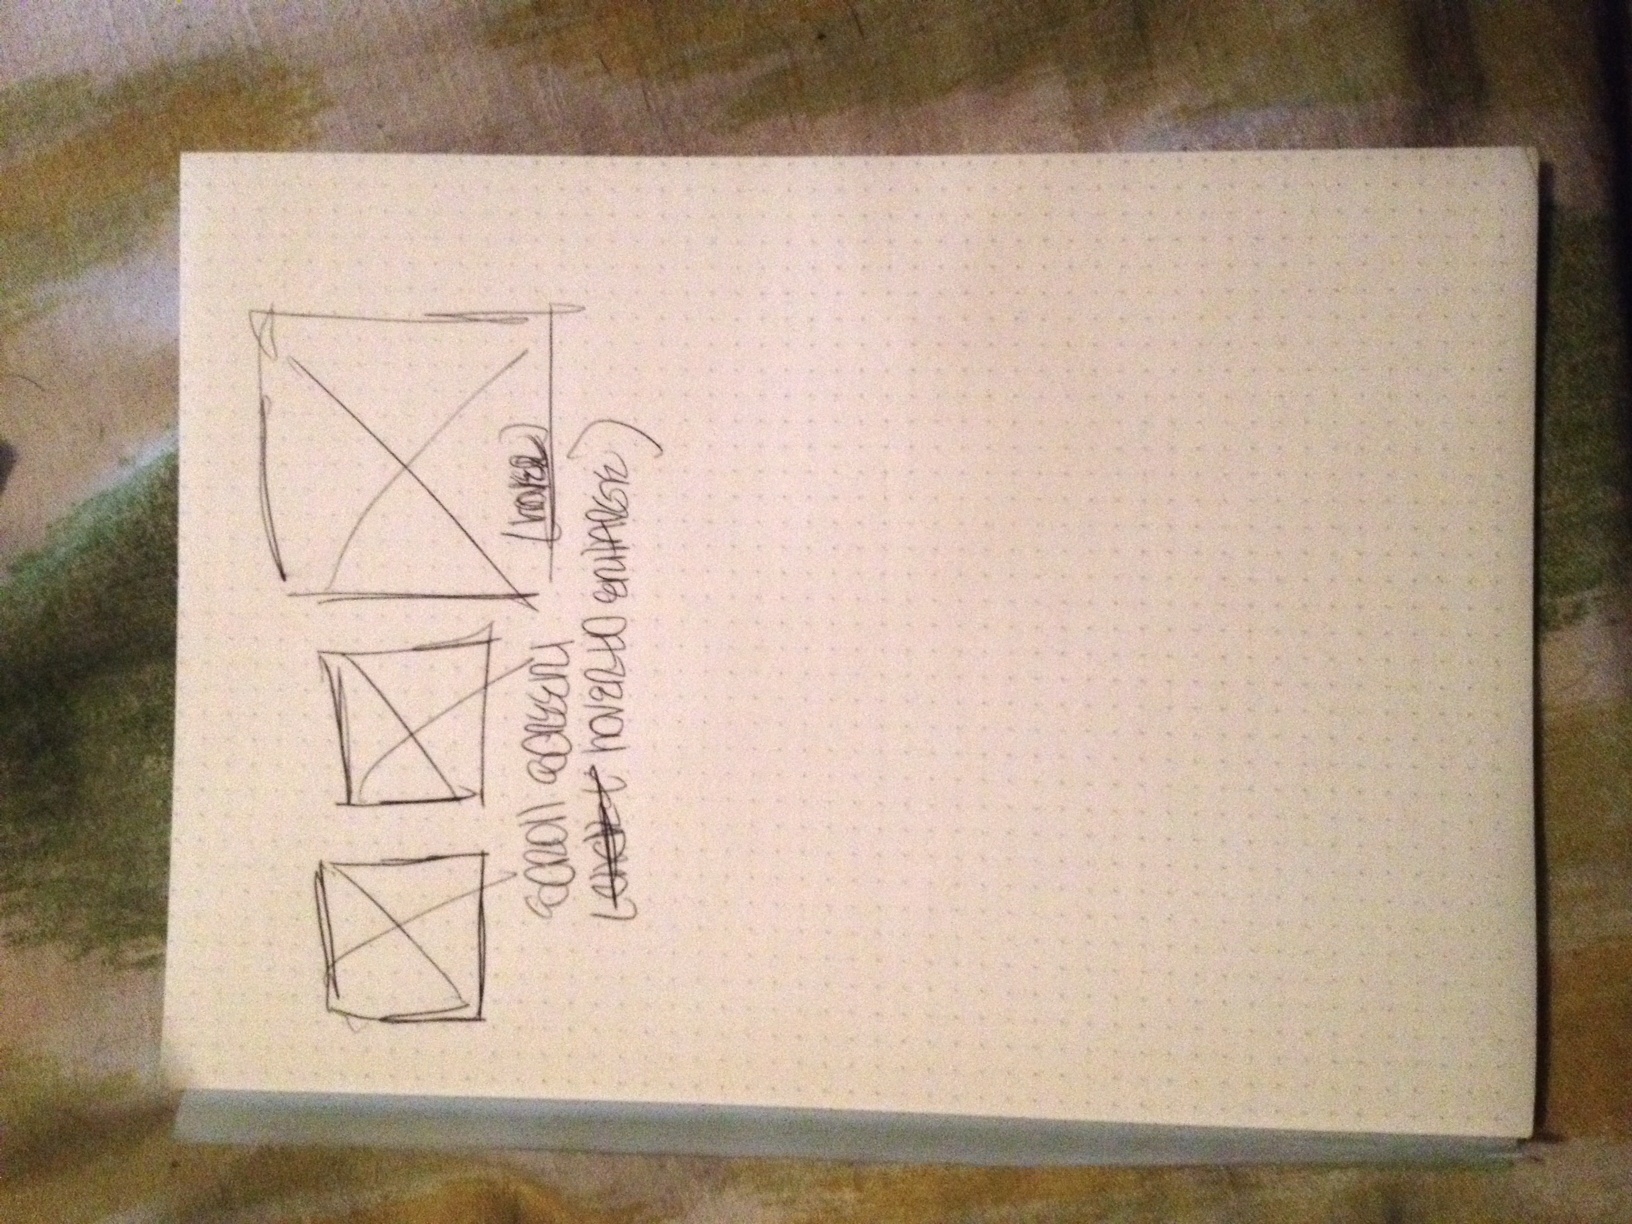 (HOVER)
SCROLL SCREEN
( HOVER TO ENLARGE)